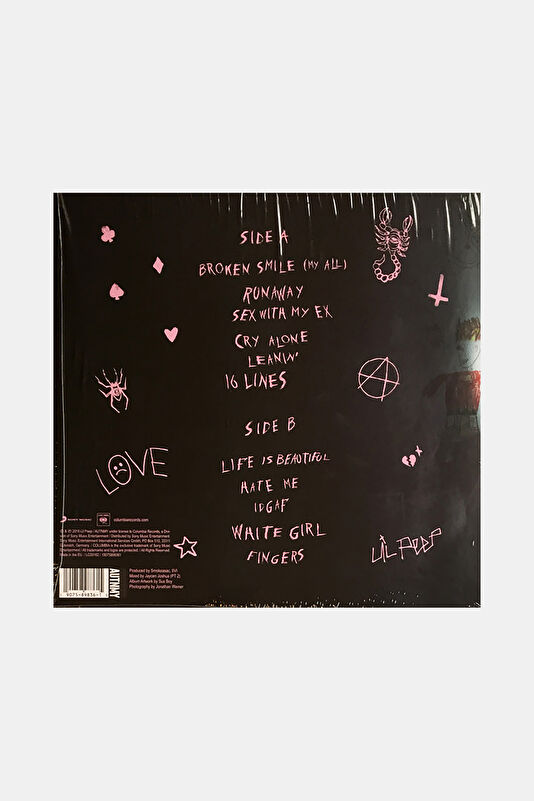 SIDE A
BROKEN SMILE (MY ALL)
RUNAWAY
SEX WITH MY EX
CRY ALONE
LEANIN'
16 LINES
SIDE B
LIFE IS BEAUTIFUL
HATE ME
IDGAF
WHITE GIRL
FINGERS
LOVE
LIL PEEP
SONY MUSIC
columbiarecords.com
AUTNMY
Produced by Smokeasac, IIVI
Mixed by Jaycen Joshua (PT 2)
Album Artwork by Sus Boy
Photography by Jonathan Weiner